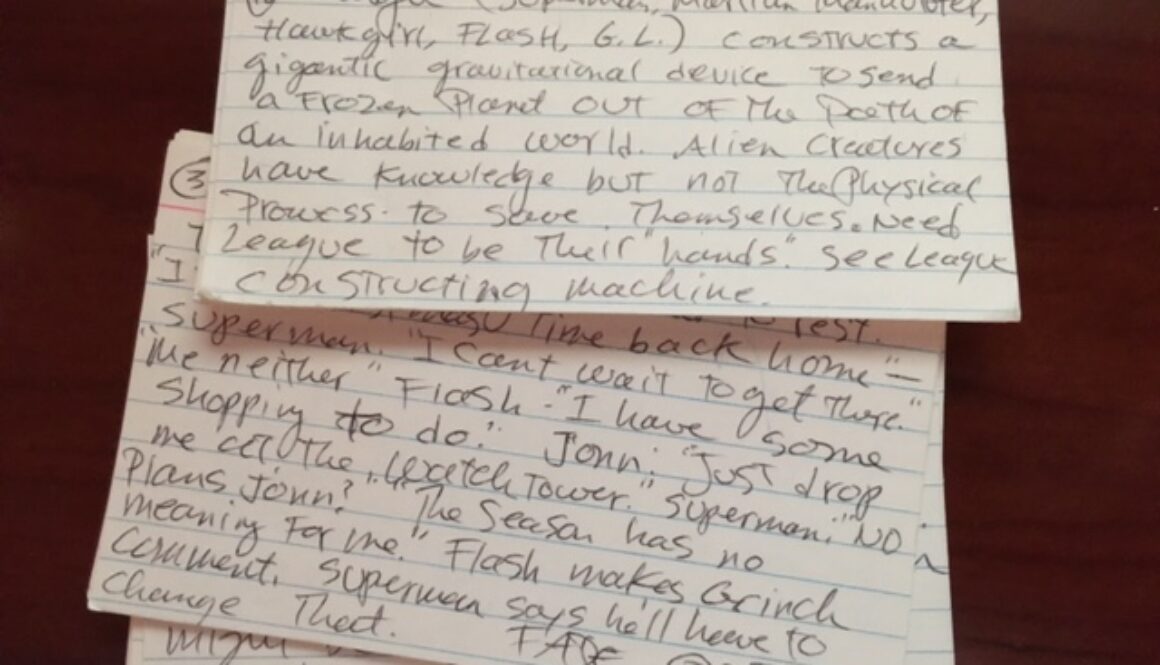 (Superman, Martian Manhunter,
Hawkgirl, FLASH, G.L.) constructs a
gigantic gravitational device to send
a Frozen Planet OUT OF The Path OF
an inhabited world. Alien Creatures
have Knowledge but not The Physical
Prowess to save Themselves. Need
League to be Their "hands." See League
constructing machine.
③
"I
Time back home" —
Superman. "I can't wait to get There."
"Me neither" Flash - "I have some
Shopping to do." Jonn: "Just drop
me at The Watch Tower." Superman: "NO
Plans, Jonn?" "The Season has no
meaning For me." Flash makes Grinch
comment. Superman says he'll have to
change That. FADE